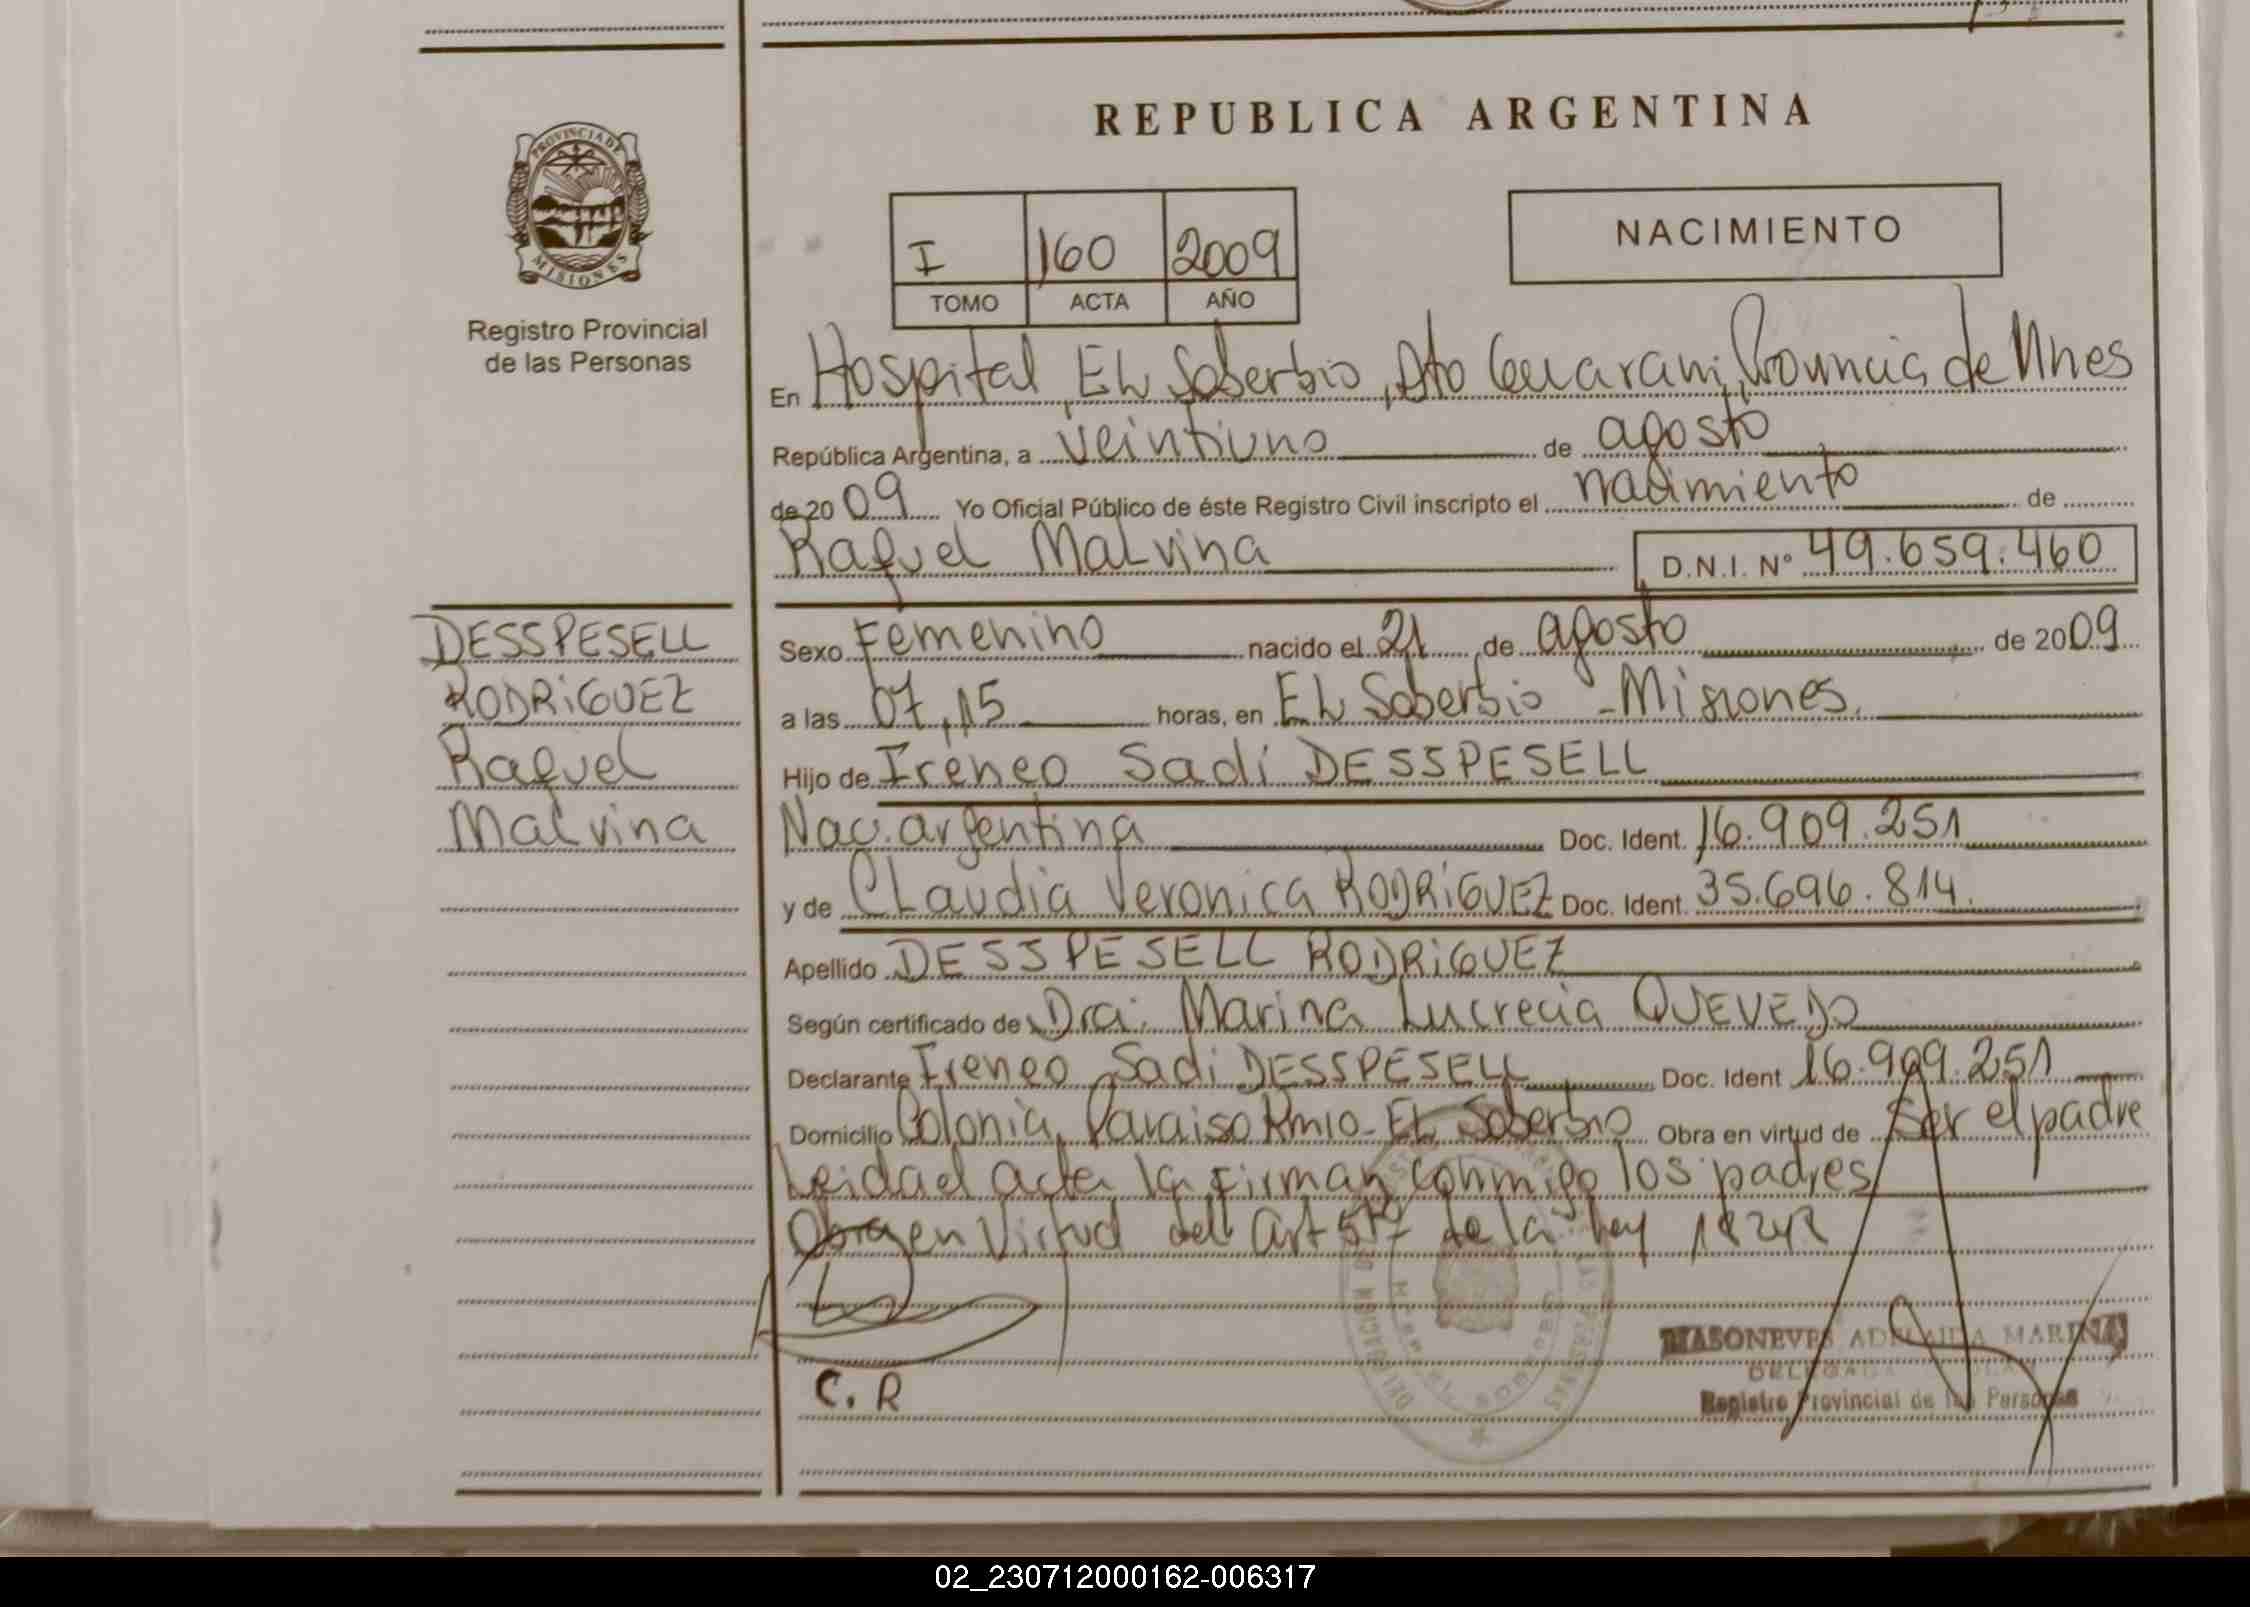 REPUBLICA ARGENTINA
PROVINCIA DE
MISIONES
Registro Provincial
de las Personas
I 160 2009
TOMO ACTA AÑO
NACIMIENTO
En Hospital, EL Soberbio, Dto Guarani, Provincia de Mnes
República Argentina, a veintiuno de agosto
de 2009 Yo Oficial Público de éste Registro Civil inscripto el nacimiento de
Raquel Malvina D.N.I. Nº 49.659.460
DESSPESELL
RODRiGUEZ
Raquel
Malvina
Sexo Femenino nacido el 21 de agosto de 2009
a las 07,15 horas, en EL Soberbio - Misiones.
Hijo de Ireneo Sadi DESSPESELL
Nac. argentina Doc. Ident. 16.909.251
y de CLaudia Veronica RODRiGUEZ Doc. Ident. 35.696.814.
Apellido DESSPESELL RODRiGUEZ
Según certificado de Dra. Marina Lucrecia QUEVEDO
Declarante Ireneo Sadi DESSPESELL Doc. Ident 16.909.251
Domicilio Colonia Paraiso Km10 - EL Soberbio Obra en virtud de ser el padre
Leida el acta la firman conmigo los padres
Obra en Virtud del Art de la Ley
C. R
MARINA
DELEGADA
Registro Provincial de las Personas
02_230712000162-006317